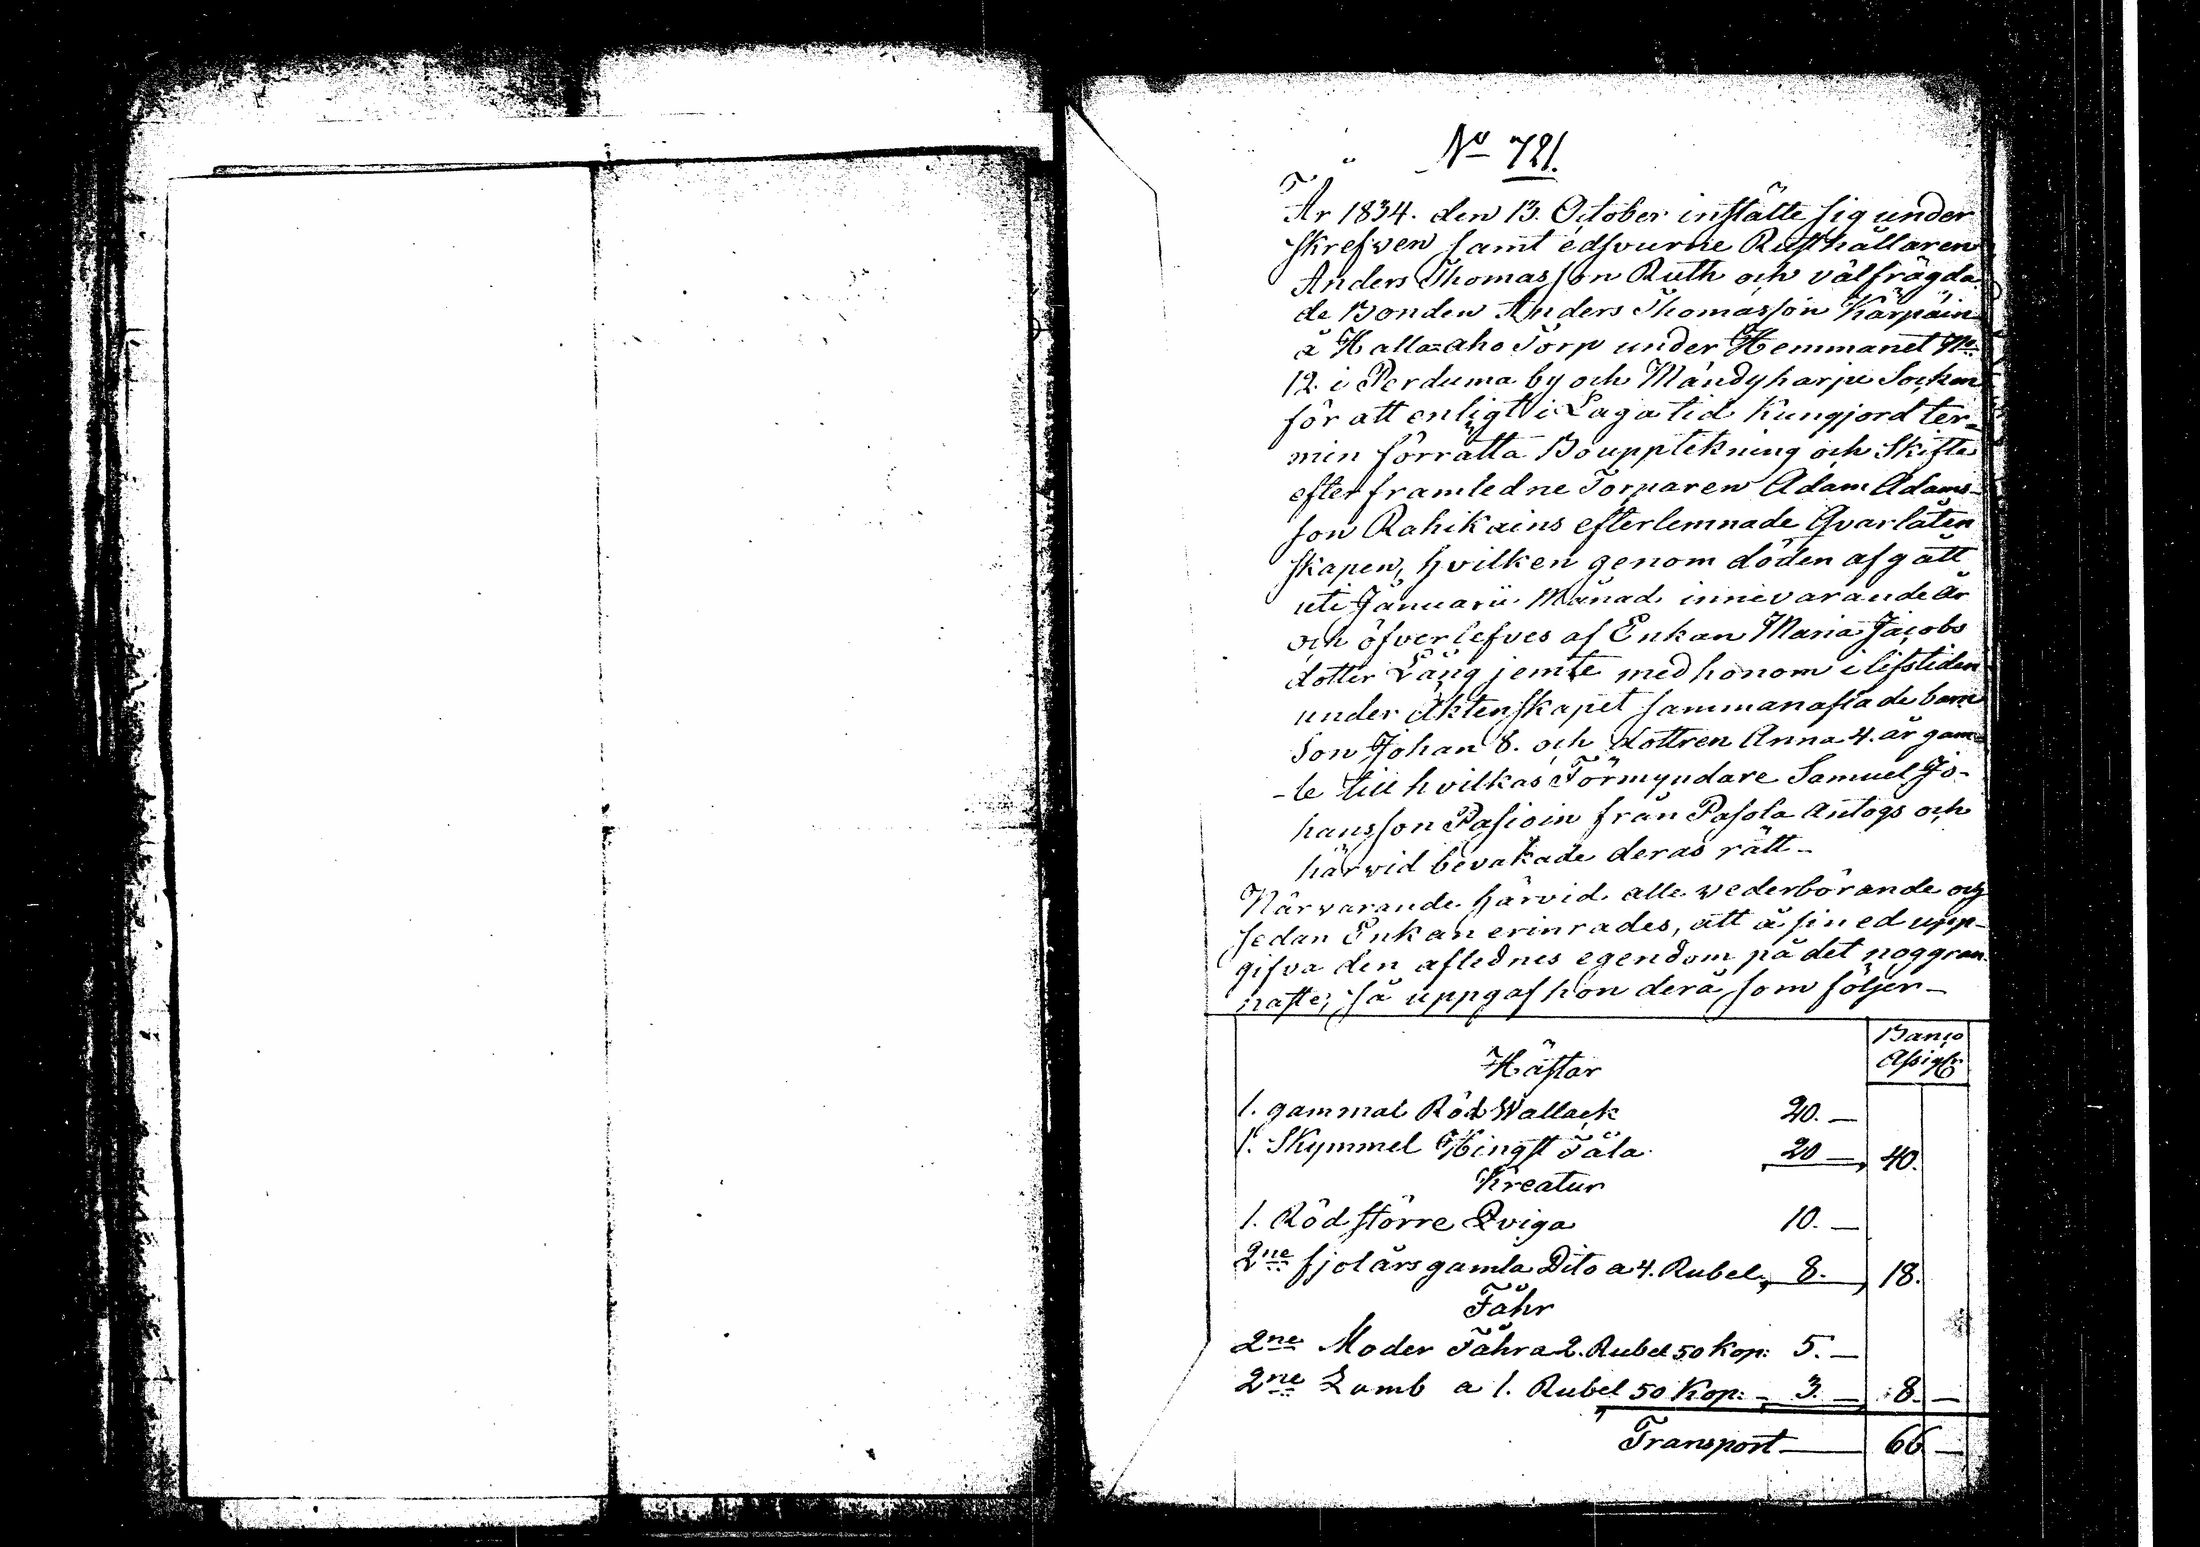 No 721.
År 1834. den 13. October instälte sig under
skrefwen samt edsvurne Rusthållaren
Anders Thomasson Ruth och välfrägda
de Bonden Anders Thomasson Kärpäin
å Halla=aho Torp under Hemmanet No
12. i Perduma by och Mändyharju Socken
för att enligt i Laga tid Kungjord ter=
min förrätta Boupptekning och Skifte
efter framledne Torparen Adam Adams-
son Rahikains efterlemnade Qvarlåten
skapen, hvilken genom döden afgått
uti Januarii Månad innevarande år
och öfverlefves af Enkan Maria Jacobs
dotter Läng jemte med honom i lifstiden
under Äktenskapet sammanaflade barn
Son Johan 8. och dottren Anna 4. år gam=
-le till hvilkas Förmyndare Samuel Jo-
hansson Pasioin från Pasola antogs och
härwid bevakade deras rätt-
Närvarande härvid alle wederbörande och
sedan Enkan erinrades, att å sin ed upp-
gifva den aflednes egendom på det noggran
naste; så uppgaf hon derå som följer-
Banco
Assign:
Hästar
1. gammal Röd Wallack 20. —
1. Skymmel Hingst Fåla 20 — 40.
Kreatur
1. Röd större Qviga 10. —
2ne fjolårsgamla Dito a 4. Rubel 8. 18.
Fåhr
2ne Moder Fåhr a 2. Rubel 50 Kop: 5. —
2ne Lamb a 1. Rubel 50 Kop: - 3. — 8. —
Transport — 66 —